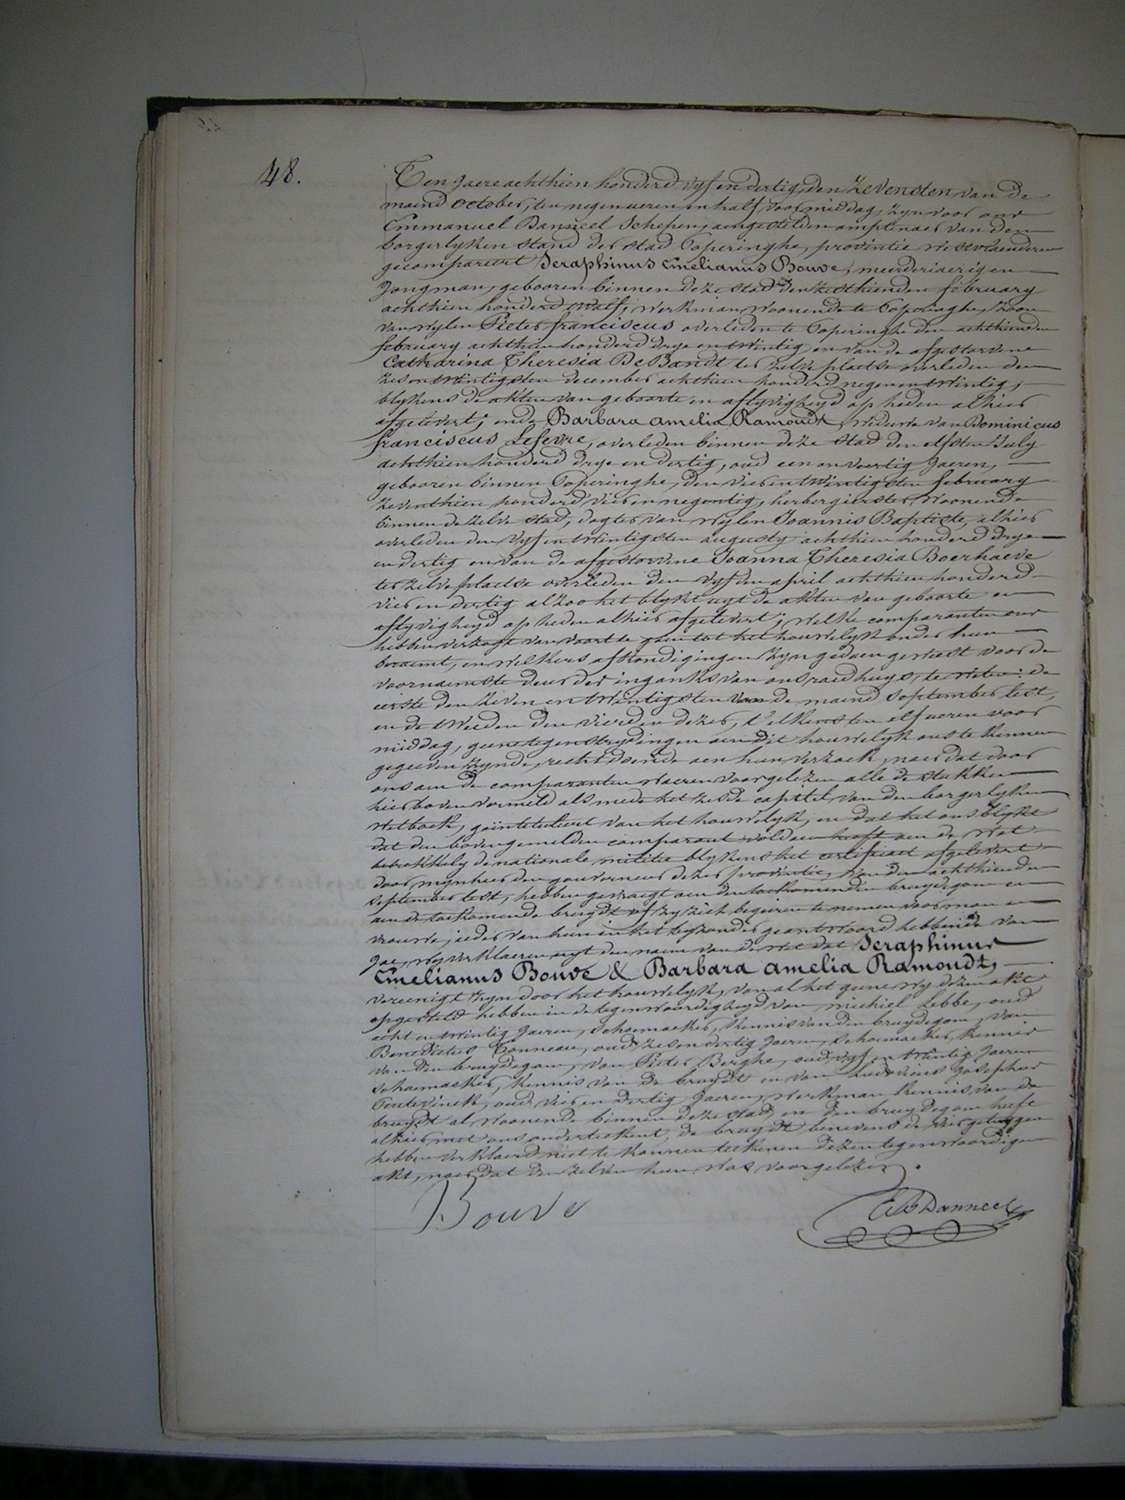 48.
Ten jaere achthien honderd vyf en dertig, den zevensten van de
maend October, ten negen ueren en half voormiddag, zyn voor ons
Emmanuel Danneel Schepen, aengestelden amptenaer van den
borgerlyken stand der stad Poperinghe, provintie Westvlaenderen
gecompareert Seraphinus Emelianus Bouve, meerderjaerigen
jongman, gebooren binnen deze stad den zesthienden february
achthien honderd twalf, werkman, woonende te Poperinghe, zoon
van wylen Pieter franciscus overleden te Poperinghe den achthienden
february achthien honderd drye en twintig, en van de afgestorvene
Catharina Theresia De Bandt ter zelve plaetse overleden den
zes en twintigsten december achthien honderd negen en twintig,
blykens de akten van geboorte en aflyvigheyd op heden alhier
afgelevert; ende Barbara amelia Ramoudt, weduwe van Dominicus
franciscus Lefevre, overleden binnen deze stad den elfsten July
achthien honderd drye en dertig, oud een en veertig jaeren,
gebooren binnen Poperinghe, den vier en twintigsten february
zeventhien honderd vier en negentig, herbergierster, woonende
binnen de zelve stad, dogter van wylen Joannis Baptiste, alhier
overleden den vyf en twintigsten augusty achthien honderd drye
en dertig en van de afgestorvene Joanna Theresia Boerhaeve
ter zelve plaetse overleden den vyfden april achthien honderd
vier en dertig alzoo het blykt uyt de akten van geboorte en
aflyvigheyd op heden alhier afgelevert; welke comparanten ons
hebben verzogt van voort te gaen tot het houwelyk onder hun
beraemt, en welkers afkondigingen zyn gedaen geweest voor de
voornaemste deur der ingank van ons raedhuys, te weten: de
eerste den zeven en twintigsten van de maend September lest,
en de tweede den vierden dezer, t'elkens ten elf ueren voor
middag, geene tegenstrydingen aen dit houwelyk ons te kennen
gegeven zynde, recht doende aen hun verzoek, naer dat door
ons aen de comparanten waeren voorgelezen alle de stukken
hier boven vermeld als mede het zesde capitel van den borgerlyken
wetboek, geïntituleert van het houwelyk, en dat het ons blykt
dat den bovengemelden comparant voldaen heeft aen de wet
betrekkelyk de nationale militie blykens het certificaet afgelevert
door mynheer den gouverneur dezer provintie, van den achthienden
september lest, hebben gevraegt aen den toekomenden bruydegom en
aen de toekomende bruydt of zy zich begeiren te nemen voor man en
vrouwe, ieder van hun in het byzonder geantwoord hebbende van
jae, wy verklaeren uyt den naem van de wet dat Seraphinus
Emelianus Bouve & Barbara amelia Ramoudt,
vereenigt zyn door het houwelyk, van al het geene wy dezen akt
opgesteld hebben in de tegenwoordigheyd van michiel Lebbe, oud
acht en twintig jaeren, schoenmaeker, kennis van den bruydegom, van
Benedictus Tonneau, oud zes en dertig jaeren, schoenmaeker, kennis
van den bruydegom, van Pieter Berghe, oud vyf en twintig jaeren
schoenmaeker, kennis van de bruydt en van Ludovicus Josephus
oud vier en dertig jaeren, werkman kennis van de
bruydt al woonende binnen deze stad, en den bruydegom heeft
alhier met ons onderteekent, de bruydt benevens de vier getuygen
hebben verklaerd niet te konnen teekenen dezen tegenwoordigen
akt, naer dat den zelven hun was voorgelezen.
Bouve
E Danneel